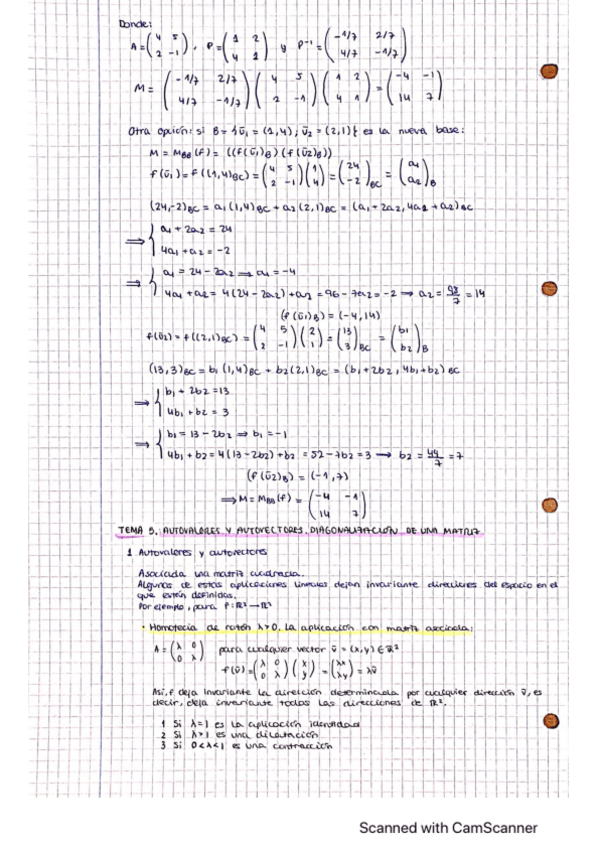 Donde:
A = (4 5; 2 -1), P = (1 2; 4 1) y P⁻¹ = (-1/7 2/7; 4/7 -1/7)
M = (-1/7 2/7; 4/7 -1/7) (4 5; 2 -1) (1 2; 4 1) = (-4 -1; 14 7)
Otra opción: si B = {ū₁ = (1,4); ū₂ = (2,1)} es la nueva base:
M = M_BB (f) = ((f(ū₁)_B) (f(ū2)_B))
f(ū₁) = f((1,4)_BC) = (4 5; 2 -1) (1; 4) = (24; -2)_BC = (a₁; a₂)_B
(24,-2)_BC = a₁(1,4)_BC + a₂(2,1)_BC = (a₁ + 2a₂, 4a₁ + a₂)_BC
⟹ { a₁ + 2a₂ = 24
4a₁ + a₂ = -2
⟹ { a₁ = 24 - 2a₂ ⟹ a₁ = -4
4a₁ + a₂ = 4(24 - 2a₂) + a₂ = 96 - 7a₂ = -2 → a₂ = 98/7 = 14
(f(ū₁)_B) = (-4, 14)
f(ū2) = f((2,1)_BC) = (4 5; 2 -1) (2; 1) = (13; 3)_BC = (b₁; b₂)_B
(13,3)_BC = b₁(1,4)_BC + b₂(2,1)_BC = (b₁ + 2b₂, 4b₁ + b₂)_BC
⟹ { b₁ + 2b2 = 13
4b₁ + b2 = 3
⟹ { b₁ = 13 - 2b₂ ⟹ b₁ = -1
4b₁ + b₂ = 4(13 - 2b2) + b₂ = 52 - 7b2 = 3 → b₂ = 49/7 = 7
(f(ū2)_B) = (-1, 7)
⟹ M = M_BB(f) = (-4 -1; 14 7)
TEMA 5. AUTOVALORES Y AUTOVECTORES. DIAGONALIZACIÓN DE UNA MATRIZ
1 Autovalores y autovectores
Asociada una matriz cuadrada.
Algunas de estas aplicaciones lineales dejan invariante direcciones del espacio en el
que están definidas.
Por ejemplo, para f: ℝ² → ℝ²
· Homotecia de razón λ>0. La aplicación con matriz asociada:
A = (λ 0; 0 λ) para cualquier vector ū = (x,y) ∈ ℝ²
f(ū) = (λ 0; 0 λ) (x; y) = (λx; λy) = λū
Así, f deja invariante la dirección determinada por cualquier dirección ū, es
decir, deja invariante todas las direcciones de ℝ².
1 Si λ=1 es la aplicación identidad
2 Si λ>1 es una dilatación
3 Si 0<λ<1 es una contracción
Scanned with CamScanner